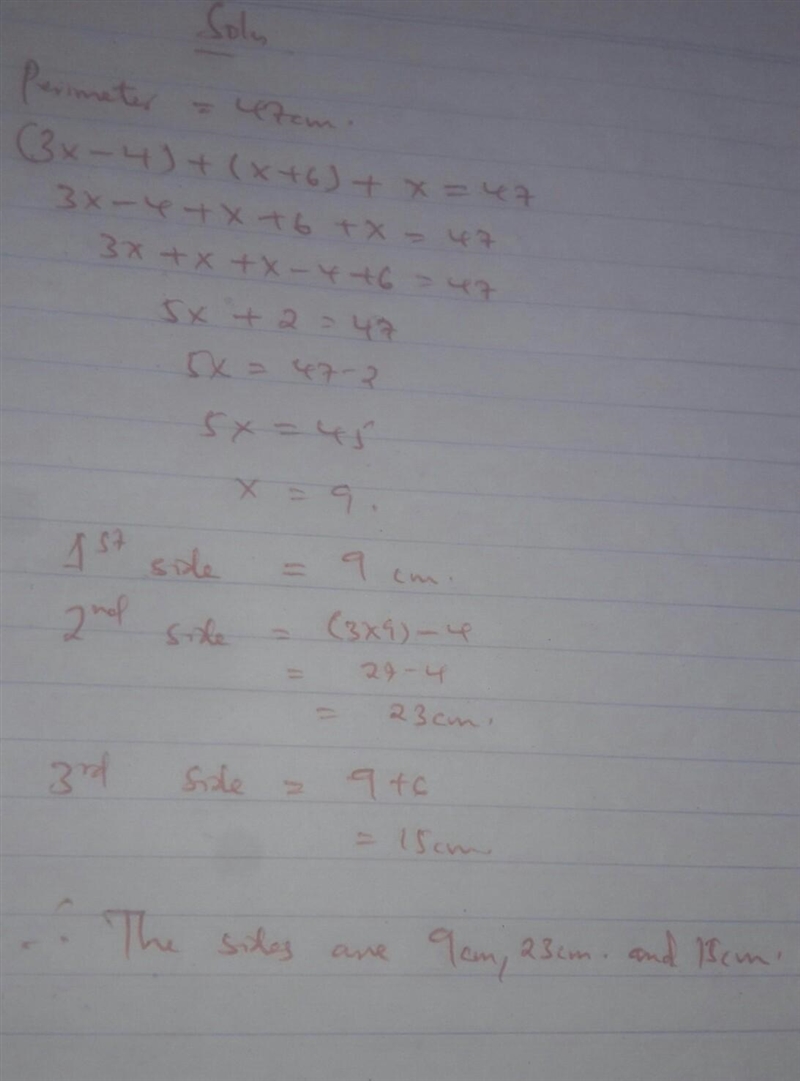 Soln
Perimeter = 47cm.
(3x-4) + (x+6) + x = 47
3x-4+x+6+x = 47
3x+x+x-4+6 = 47
5x + 2 = 47
5x = 47-2
5x = 45
x = 9.
1st side = 9 cm.
2nd side = (3x9)-4
= 27-4
= 23cm.
3rd side = 9+6
= 15cm.
∴ The sides are 9cm, 23cm. and 15cm.